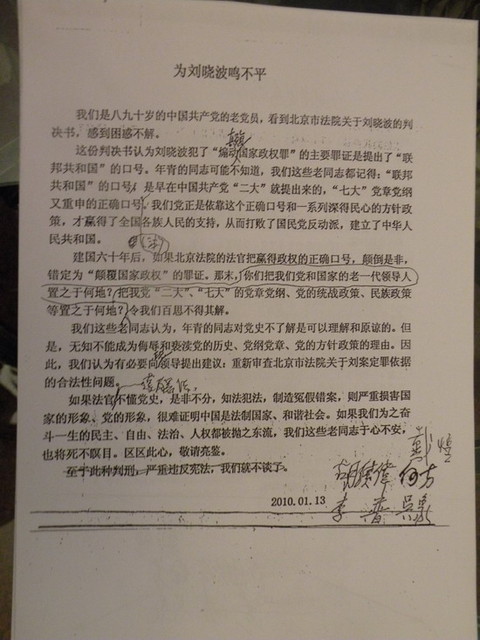 为刘晓波鸣不平
我们是八九十岁的中国共产党的老党员，看到北京市法院关于刘晓波的判
决书，感到困惑不解。
这份判决书认为刘晓波犯了“煽动国家政权罪”的主要罪证是提出了“联
邦共和国”的口号。年青的同志可能不知道，我们这些老同志都记得：“联邦
共和国”的口号，是早在中国共产党“二大”就提出来的，“七大”党章党纲
又重申的正确口号，我们党正是依靠这个正确口号和一系列深得民心的方针政
策，才赢得了全国各族人民的支持，从而打败了国民党反动派，建立了中华人
民共和国。
建国六十年后，如果北京的法官把赢得政权的正确口号，颠倒是非，
错定为“颠覆国家政权”的罪证。那末，你们把我们党和国家的老一代领导人
置之于何地？把我党“二大”、“七大”的党章党纲、党的统战政策、民族政策
等置之于何地？令我们百思不得其解。
我们这些老同志认为，年青的同志对党史不了解是可以理解和原谅的。但
是，无知不能成为侮辱和亵渎党的历史、党纲党章、党的方针政策的理由。因
此，我们认为有必要向领导提出建议：重新审查北京市法院关于刘案定罪依据
的合法性问题。
如果法官不懂党史，是非不分，知法犯法，制造冤假错案，则严重损害国
家的形象、党的形象，很难证明中国是法制国家、和谐社会。如果我们为之奋
斗一生的民主、自由、法治、人权都被抛之东流，我们这些老同志于心不安，
也将死不瞑目。区区此心，敬请亮鉴。
至于此种判刑，严重违反宪法，我们就不谈了。
胡绩伟 何方
2010.01.13
李普